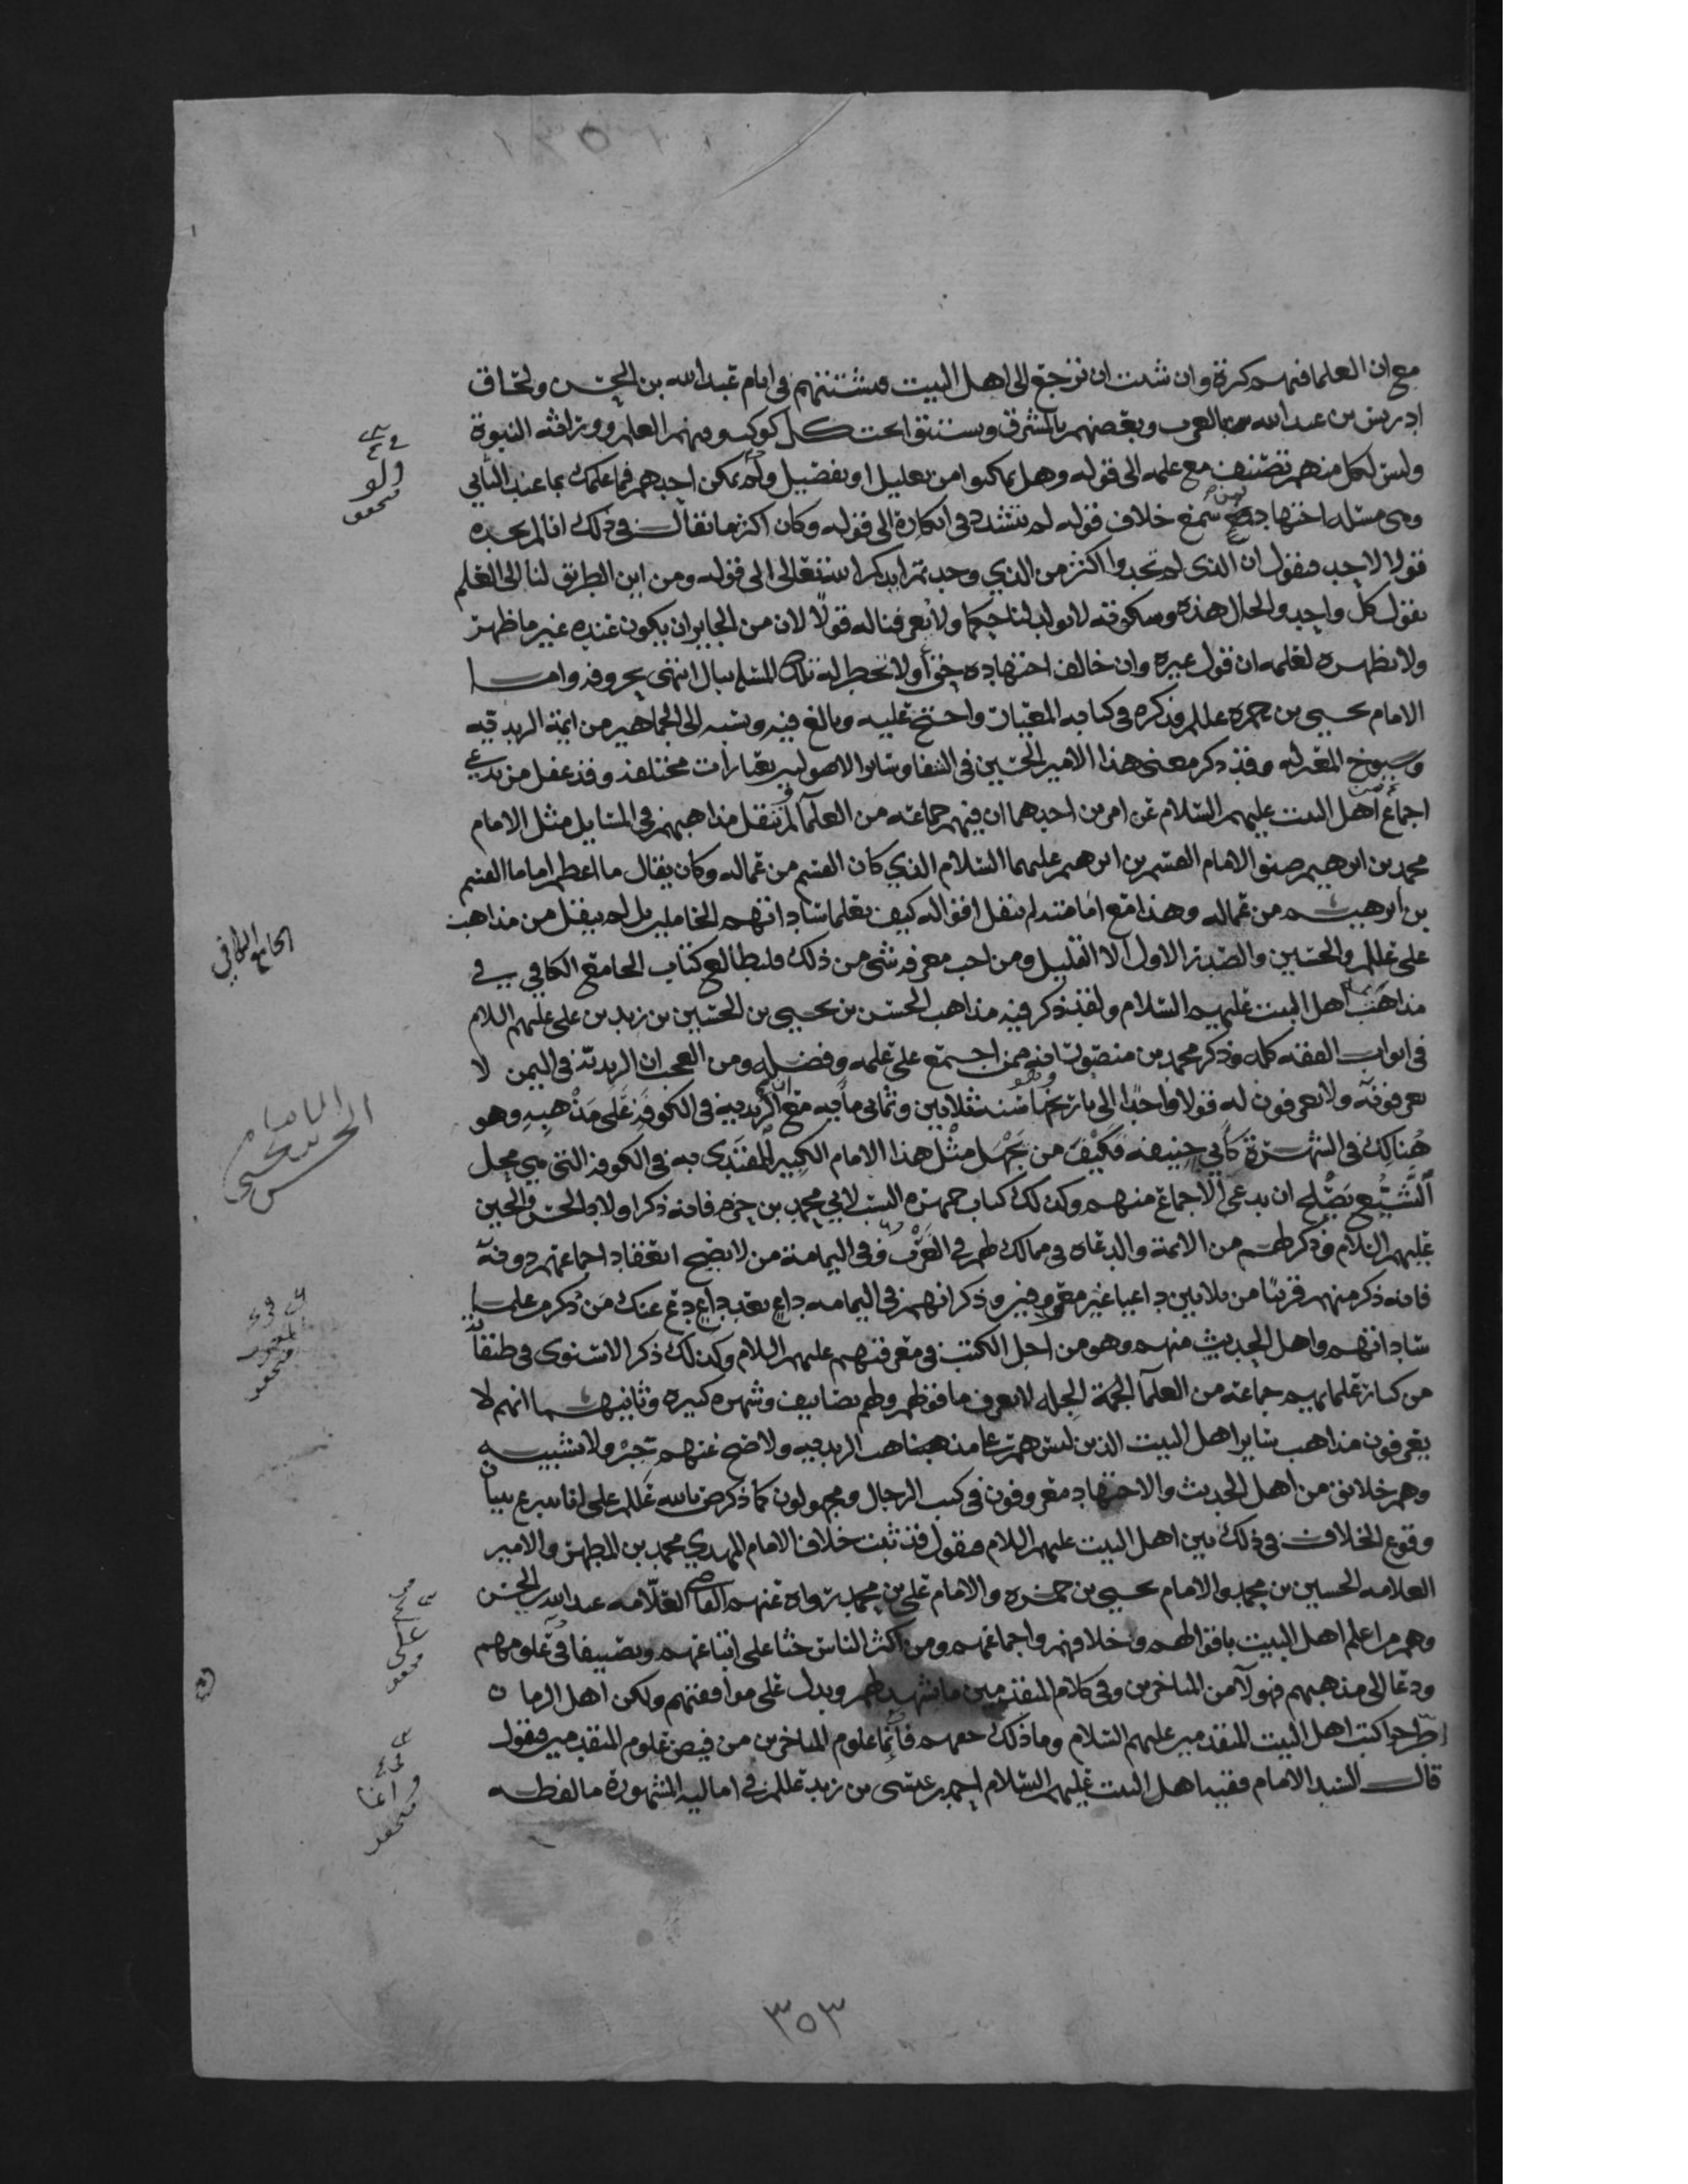 مع ان العلما فيهم كثرة وان شئت ان ترجع الى اهل البيت فتشتتهم في ايام عبد الله بن الحسن ولحاق
ادريس بن عبد الله بالغرب وبعضهم بالمشرق تحت كل كوكب وفيهم العلم ووراثة النبوة
وليس لكل منهم تصنيف مع علمه الى قوله وهل تمكنوا من تعليل او تفضيل ولو تمكن احدهم فما علمك بما عند الثاني
وهي مسئلة اجتهادية خلاف قوله لم يتشدد في انكاره الى قوله وكان اكثر ما يقال في ذلك انا لم نجده
قولا لاحد فنقول ان الذي لم تجدوا اكثر من الذي وجدتم الى قوله ومن اين الطريق لنا الى العلم
بقول كل واحد والحال هذه وسكوته لا يولد لنا حكما ولا يعرفنا له قولا لان من الجايز ان يكون عنده غير ما ظهر
ولا يظهره لعلمه ان قول غيره وان خالف اجتهاده حق اولا تخطر له تلك المسئلة ببال انتهى بحروفه واما
الامام يحيى بن حمزة عللم فذكره في كتابه واحتج عليه وبالغ فيه ونسبه الى الجماهير من ايمة الزيدية
وشيوخ المعتزله وقد ذكر معنى هذا الامير الحسين في الشفا وساير الاصوليين بعبارات مختلفة وقد غفل من يدعي
اجماع اهل البيت عليهم السلام عن امرين احدهما ان فيهم جماعة من العلما لم تنقل مذاهبهم في المسايل مثل الامام
محمد بن ابرهيم صنو الامام القسم بن ابرهيم عليهما السلام الذي كان القسم من عماله وكان يقال ما اعظم اماما القسم
بن ابرهيم من عماله وهذا مع امامته لم تنقل اقواله كيف بعلما ساداتهم الخاملين بل لم ينقل من مذاهب
علي عللم والحسنين والصدر الاول الا القليل ومن احب معرفة شي من ذلك فليطالع كتاب الجامع الكافي في
مذاهب اهل البيت عليهم السلام ولقد ذكر فيه مذاهب الحسن بن يحيى بن الحسين بن زيد بن علي عليهم السلام
في ابواب الفقه كله وذكر محمد بن منصور انه ممن اجتمع على علمه وفضله ومن العجب ان الزيدية في اليمن لا
يعرفونه ولا يعرفون له قولا واحدا الى تاريخها سنة ثلاثين وثماني مايه مع ان الزيدية في الكوفة على مذهبه وهو
هنالك في الشهرة كابي حنيفه فكيف من يجهل مثل هذا الامام الكبير المقتدى به في الكوفة التي هي محل
التشيع يصلح ان يدعي الاجماع منهم وكذلك كتاب جمهرة النسب لابي محمد بن حزم فانه ذكر اولاد الحسن والحسين
عليهم السلام وذكر لهم من الايمة والدعاة في ممالك لهم في الغرب وفي اليمامة من لا يصح انعقاد اجماعهم دونه
فانه ذكر منهم قريبا من ثلاثين داعيا غير معروفين وذكر انهم في اليمامه داع بعد داع دع عنك من ذكر من علما
ساداتهم واهل الحديث منهم وهو من اجل الكتب في معرفتهم عليهم السلام وكذلك ذكر الاسنوي في طبقاته
من كبار علمايهم جماعة من العلما الجمة الجله لا يعرف ما قولهم ولهم تصانيف وشهره كبيره وثانيهما انهم لا
يعرفون مذاهب ساير اهل البيت الذين ليس هم على مذهب الزيديه ولا صح عنهم جبر ولا تشبيه
وهم خلائق من اهل الحديث والاجتهاد معروفون في كتب الرجال ومجهولون كما ذكر عللم على انا بيان
وقوع الخلاف في ذلك بين اهل البيت عليهم السلام فنقول قد ثبت خلاف الامام المهدي محمد بن المطهر والامير
العلامه الحسين بن محمد والامام يحيى بن حمزه والامام علي بن محمد رواه عنهم القاضي العلامه عبد الله بن الحسن
وهم من اعلم اهل البيت باقوالهم وخلافهم واجماعهم ومن اكثر الناس حثا على اتباعهم وتصنيفا في علومهم
ودعا الى مذهبهم فهولآ من المتاخرين وفي كلام المتقدمين ما يشهد لهم ويدل على موافقتهم ولكن اهل الزمان
اطرحوا كتب اهل البيت المتقدمين عليهم السلام وما ذلك حقهم فانما علوم المتاخرين من فيض علوم المتقدمين فنقول
قال السيد الامام فقيه اهل البيت عليهم السلام احمد بن عيسى بن زيد عللم في اماليه المشهورة ما لفظه
الجامع الكافي
الحسن بن يحيى
٣٥٣